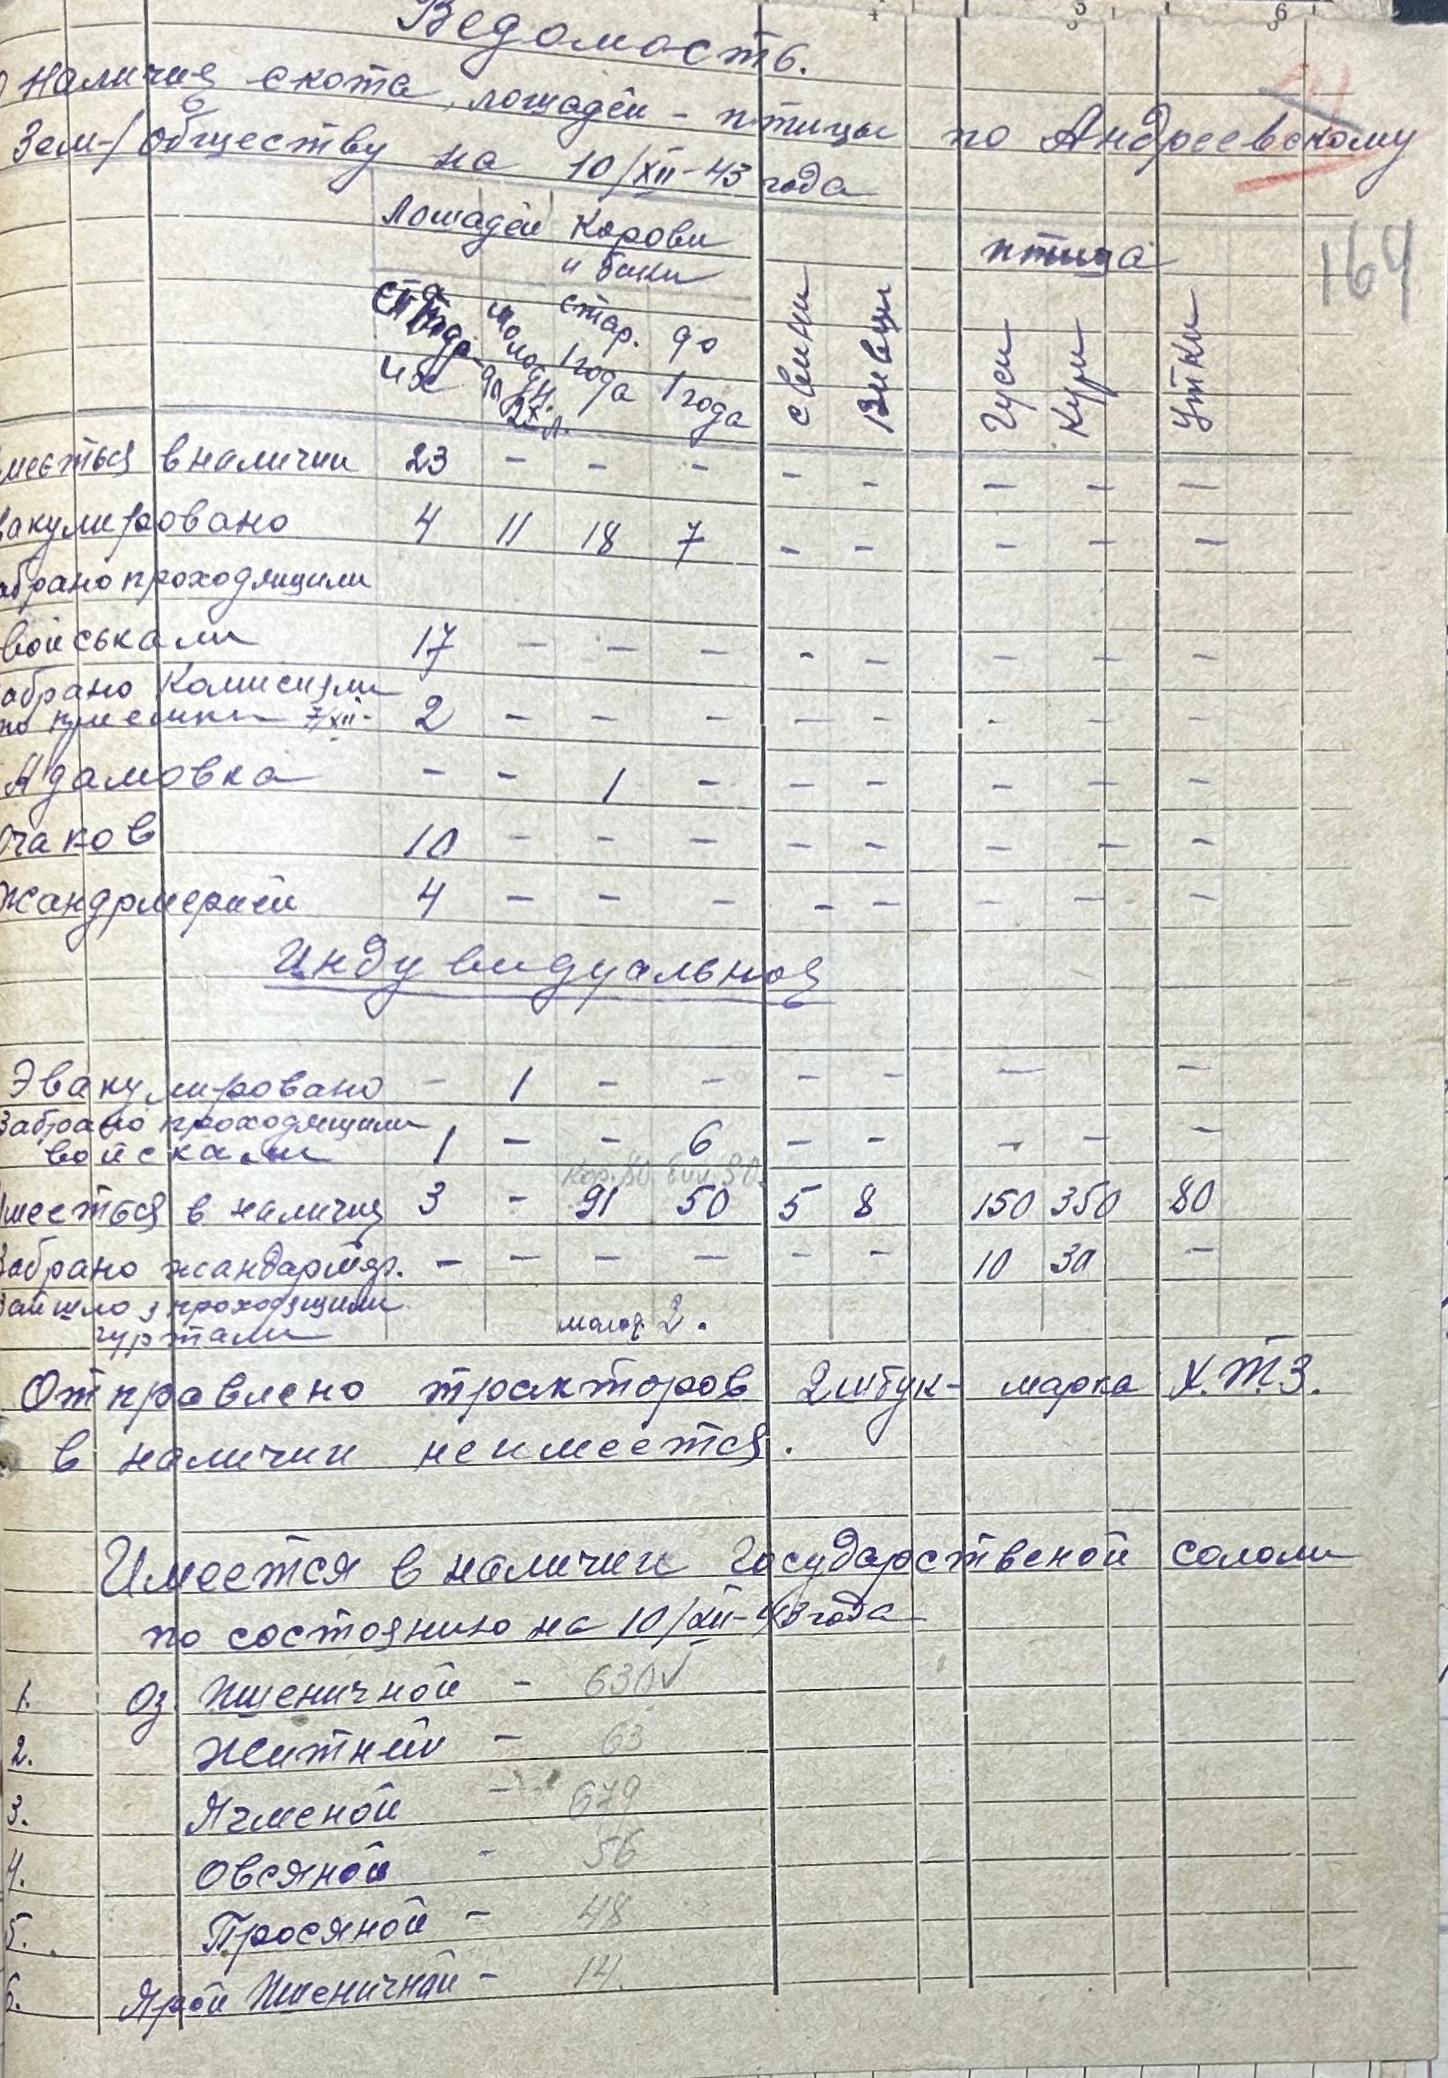 Ведомость.
Наличия скота, лошадей - птицы по Андреевскому
Зем-/обществу на 10/XII-43 года
164
Лошадей Корови птица
и бики
стар. до свини Вивци Гуси Кури Утки
молодн. 1 года 1 года
до 2х л.
меється в наличии 23 - - - - - - - -
вакуированo 4 11 18 7 - - - - -
абрано проходящими
войськами 17 - - - - - - - -
абрано Комисиями
по приемки 7/XII- 2 - - - - - - - -
Адамовка - - 1 - - - - - -
Очаков 10 - - - - - - - -
Жандрмерией 4 - - - - - - - -
Индувидуальная
Эвакулировано - 1 - - - - - -
Забрано проходящими
войсками 1 - - 6 - - - - -
Кор. 80
меється в наличия 3 - 91 50 5 8 150 350 80
Забрано жандармяр. - - - - - - 10 30 -
Зайшло з проходящими
гуртами молод 2.
Отправлено тракторов 2 штук- марка Х.Т.З.
в наличии неимеется.
Имеется в наличии Государственой соломи
по состоянию на 10/XII-43 года
1. Оз Пшеничной - 630 ✓
2. Житней - 63
3. Ячменой - 679
4. Овсяной - 56
5. Просяной - 48
6. Ярой Пшеничной - 14.